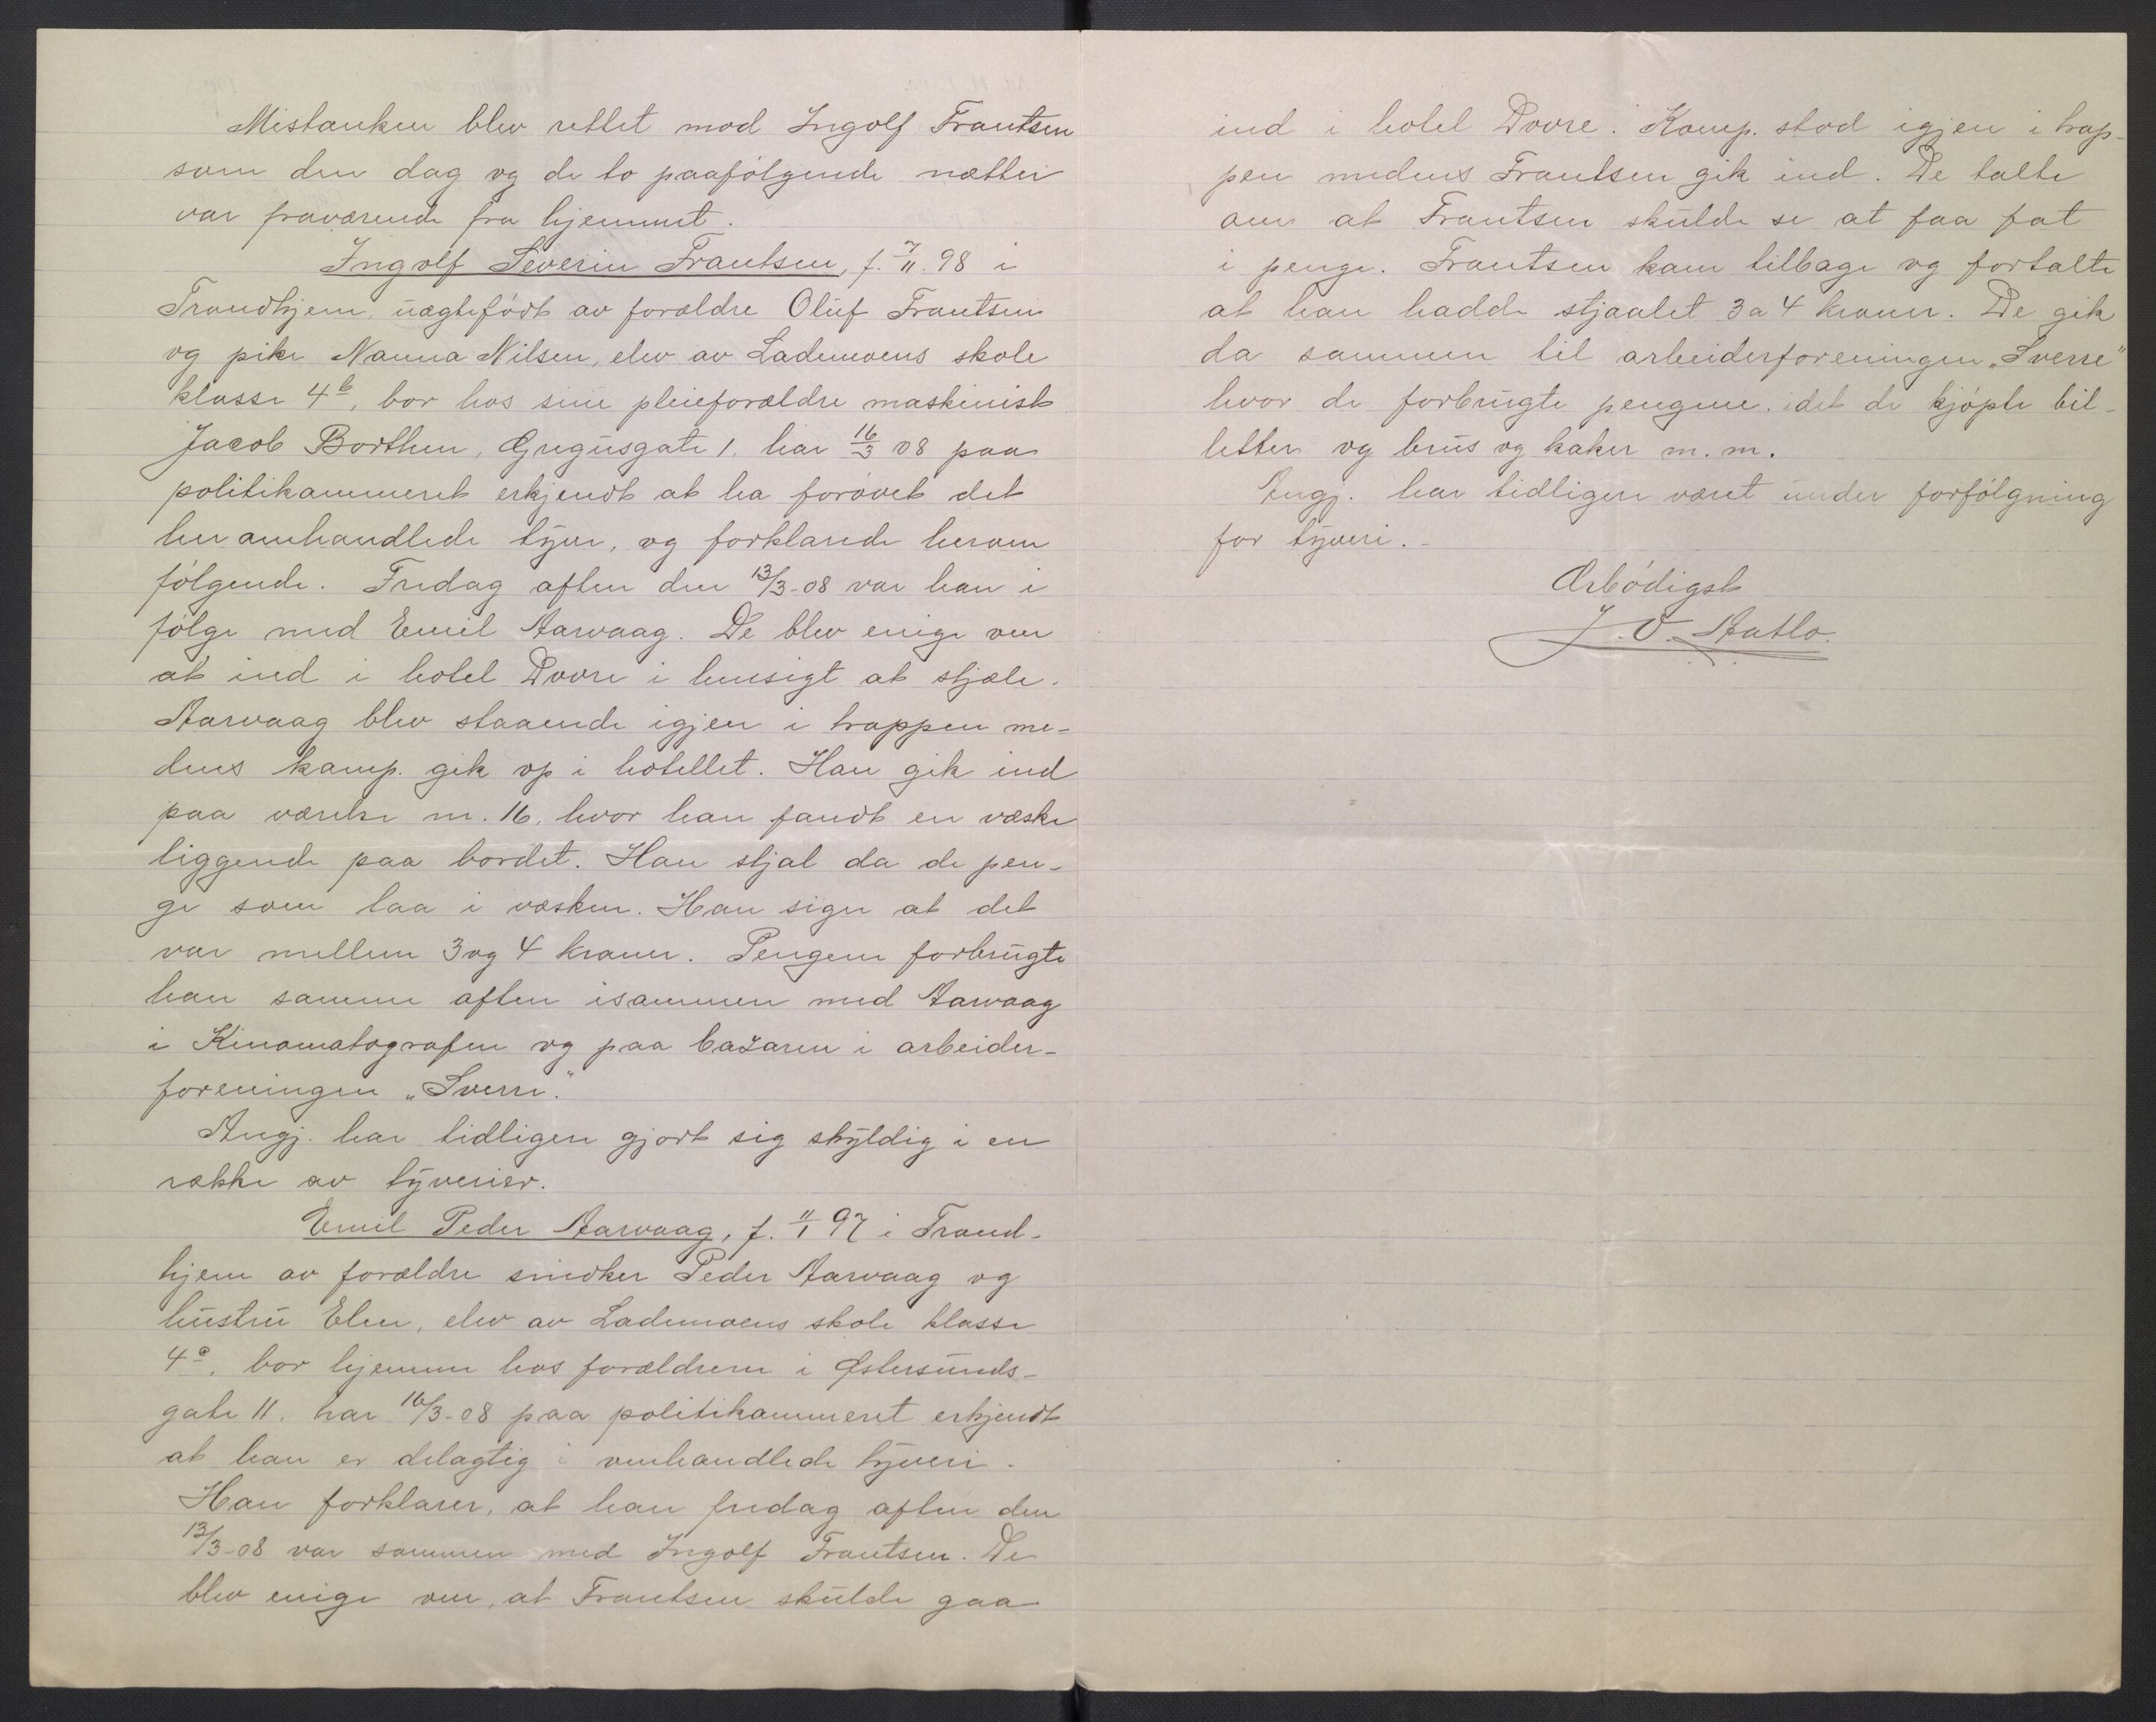 Mistanken blev rettet mod Ingolf Frantsen
som den dag og de to paafølgende nætter
var fraværende fra hjemmet.
Ingolf Severin Frantsen, f. 7/11. 98 i
Trondhjem, uægtefødt av forældre Oluf Frantsen
og pike Nanna Nilsen, elev av Lademoens skole
klasse 4b, bor hos sine pleieforældre maskinist
Jacob Borthen, Gregusgate 1. har 16/3 08 paa
politikammeret erkjendt at ha forøvet det
her omhandlede tyveri, og forklarede herom
følgende. Fredag aften den 13/3-08 var han i
følge med Emil Aarvaag. De blev enige om
at ind i hotel Dovre i hensigt at stjæle.
Aarvaag blev staaende igjen i trappen me-
dens komp. gik op i hotellet. Han gik ind
paa værelse nr. 16, hvor han fandt en væske
liggende paa bordet. Han stjal da de pen-
ge som laa i væsken. Han siger at det
var mellem 3 og 4 kroner. Pengene forbrugte
han samme aften isammen med Aarvaag
i Kinomatografen og paa bazaren i arbeider-
foreningen „Sverre.“
Angj. har tidligere gjort sig skyldig i en
række av tyverier.
Emil Peder Aarvaag, f. 11/1 97 i Trond-
hjem av forældre snedker Peder Aarvaag og
hustru Elen, elev av Lademoens skole klasse
4a, bor hjemme hos forældrene i Østersunds-
gate 11. har 16/3-08 paa politikammeret erkjendt
at han er delagtig i omhandlede tyveri.
Han forklarer, at han fredag aften den
13/3-08 var sammen med Ingolf Frantsen. De
blev enige om, at Frantsen skulde gaa
ind i hotel Dovre. Komp. stod igjen i trap-
pen medens Frantsen gik ind. De talte
om at Frantsen skulde se at faa fat
i penge. Frantsen kom tilbage og fortalte
at han hadde stjaalet 3 a 4 kroner. De gik
da sammen til arbeiderforeningen „Sverre“
hvor de forbrugte pengene. idet de kjøpte bil-
letter og brus og kaker m. m.
Angj. har tidligere været under forfølgning
for tyveri.-
Ærbødigst
J. O. Aatlo.